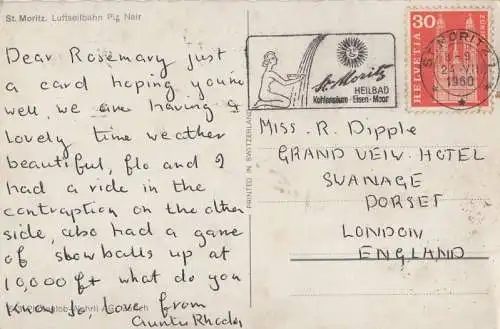 St. Moritz. Luftseilbahn Piz Nair
Dear Rosemary just
a card hoping you're
well, we are having a
lovely time weather
beautiful, flo and I
had a ride in the
contraption on the other
side, also had a game
of snowballs up at
10,000 ft what do you
know, love from
Aunty Rhoda,
PRINTED IN SWITZERLAND
St. Moritz
HEILBAD
Kohlensäure - Eisen - Moor
30
HELVETIA
ST. MORITZ 1
1960
MISS. R. DIPPLE
GRAND VEIW HOTEL
SWANAGE
DORSET
LONDON
ENGLAND